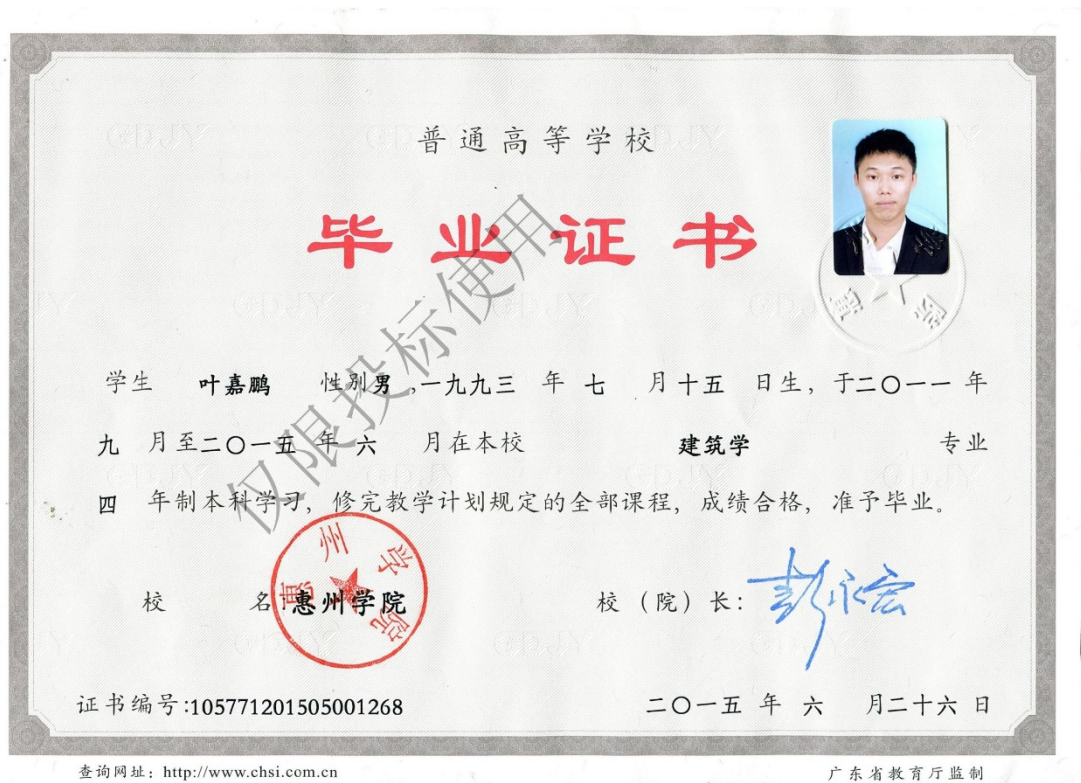 普通高等学校
毕业证书
学生 叶嘉鹏 性别男,一九九三 年 七 月十五 日生，于二〇一一 年
九 月至二〇一五 年 六 月在本校 建筑学 专业
四 年制本科学习，修完教学计划规定的全部课程，成绩合格，准予毕业。
校 名:惠州学院 校（院）长：彭永宏
惠州学院
证书编号:105771201505001268 二〇一五 年 六 月二十六 日
查询网址：http://www.chsi.com.cn 广东省教育厅监制
仅限投标使用